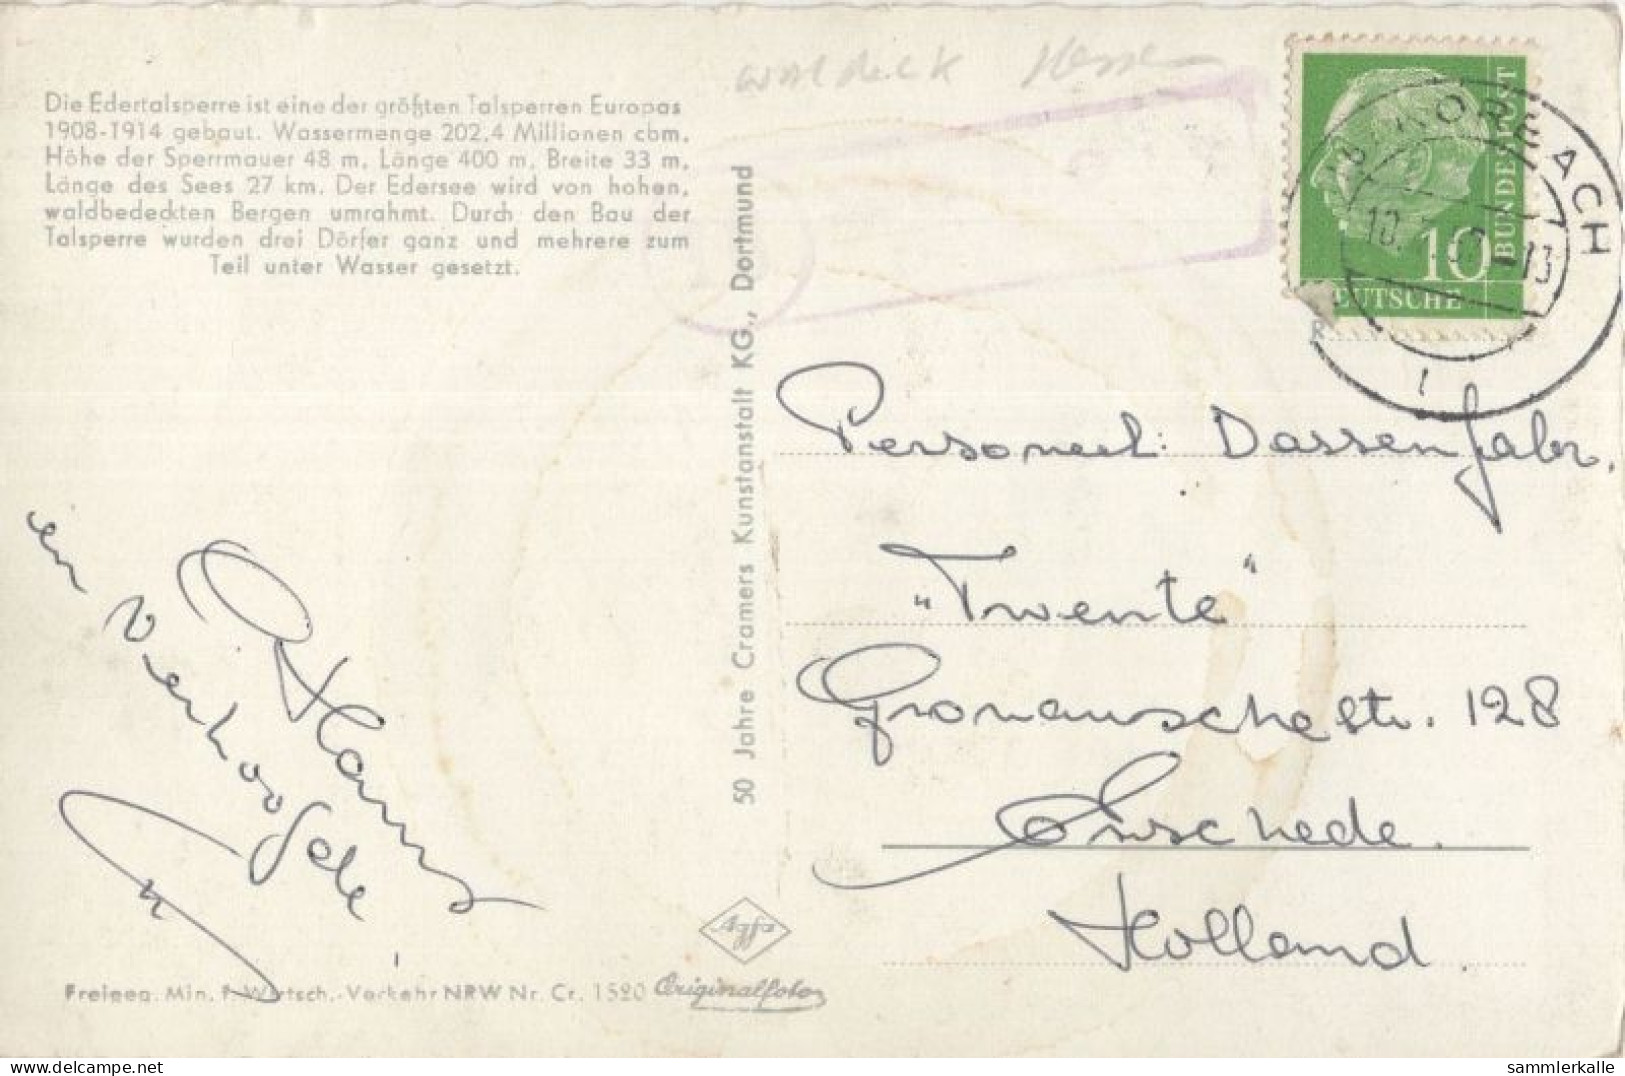 waldeck Hessen
Die Edertalsperre ist eine der größten Talsperren Europas
1908-1914 gebaut. Wassermenge 202,4 Millionen cbm.
Höhe der Sperrmauer 48 m, Länge 400 m, Breite 33 m,
Länge des Sees 27 km. Der Edersee wird von hohen,
waldbedeckten Bergen umrahmt. Durch den Bau der
Talsperre wurden drei Dörfer ganz und mehrere zum
Teil unter Wasser gesetzt.
KORBACH
10
DEUTSCHE
BUNDESPOST
50 Jahre Cramers Kunstanstalt KG., Dortmund
Personeel: Dassenfabr.
"Twente"
Gronauschestr. 128
Enschede.
Holland.
Hans
en
Agfa
Originalfoto
Freigeg. Min. f. Wirtsch.-Verkehr NRW Nr. Cr. 1520
sammlerkalle